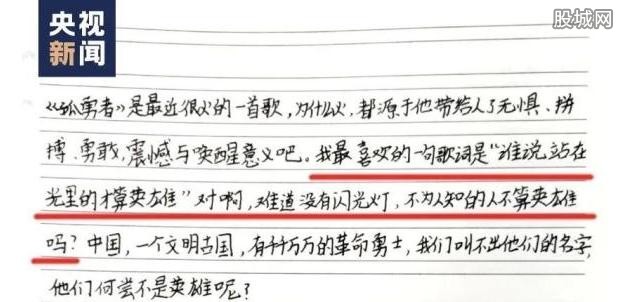 央视新闻
股城网
《孤勇者》是最近很火的一首歌,为什么火,都源于他带给人了无惧、拼
搏、勇敢,震憾与唤醒意义吧。我最喜欢的一句歌词是“谁说站在
光里的才算英雄”对啊,难道没有闪光灯,不为人知的人不算英雄
吗?中国,一个文明古国,有千千万万的革命勇士,我们叫不出他们的名字,
他们何尝不是英雄呢?